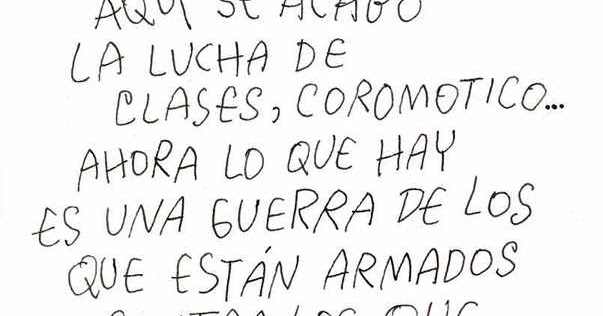 AQUÍ SE ACABÓ
LA LUCHA DE
CLASES, COROMOTICO...
AHORA LO QUE HAY
ES UNA GUERRA DE LOS
QUE ESTÁN ARMADOS
CONTRA LOS QUE